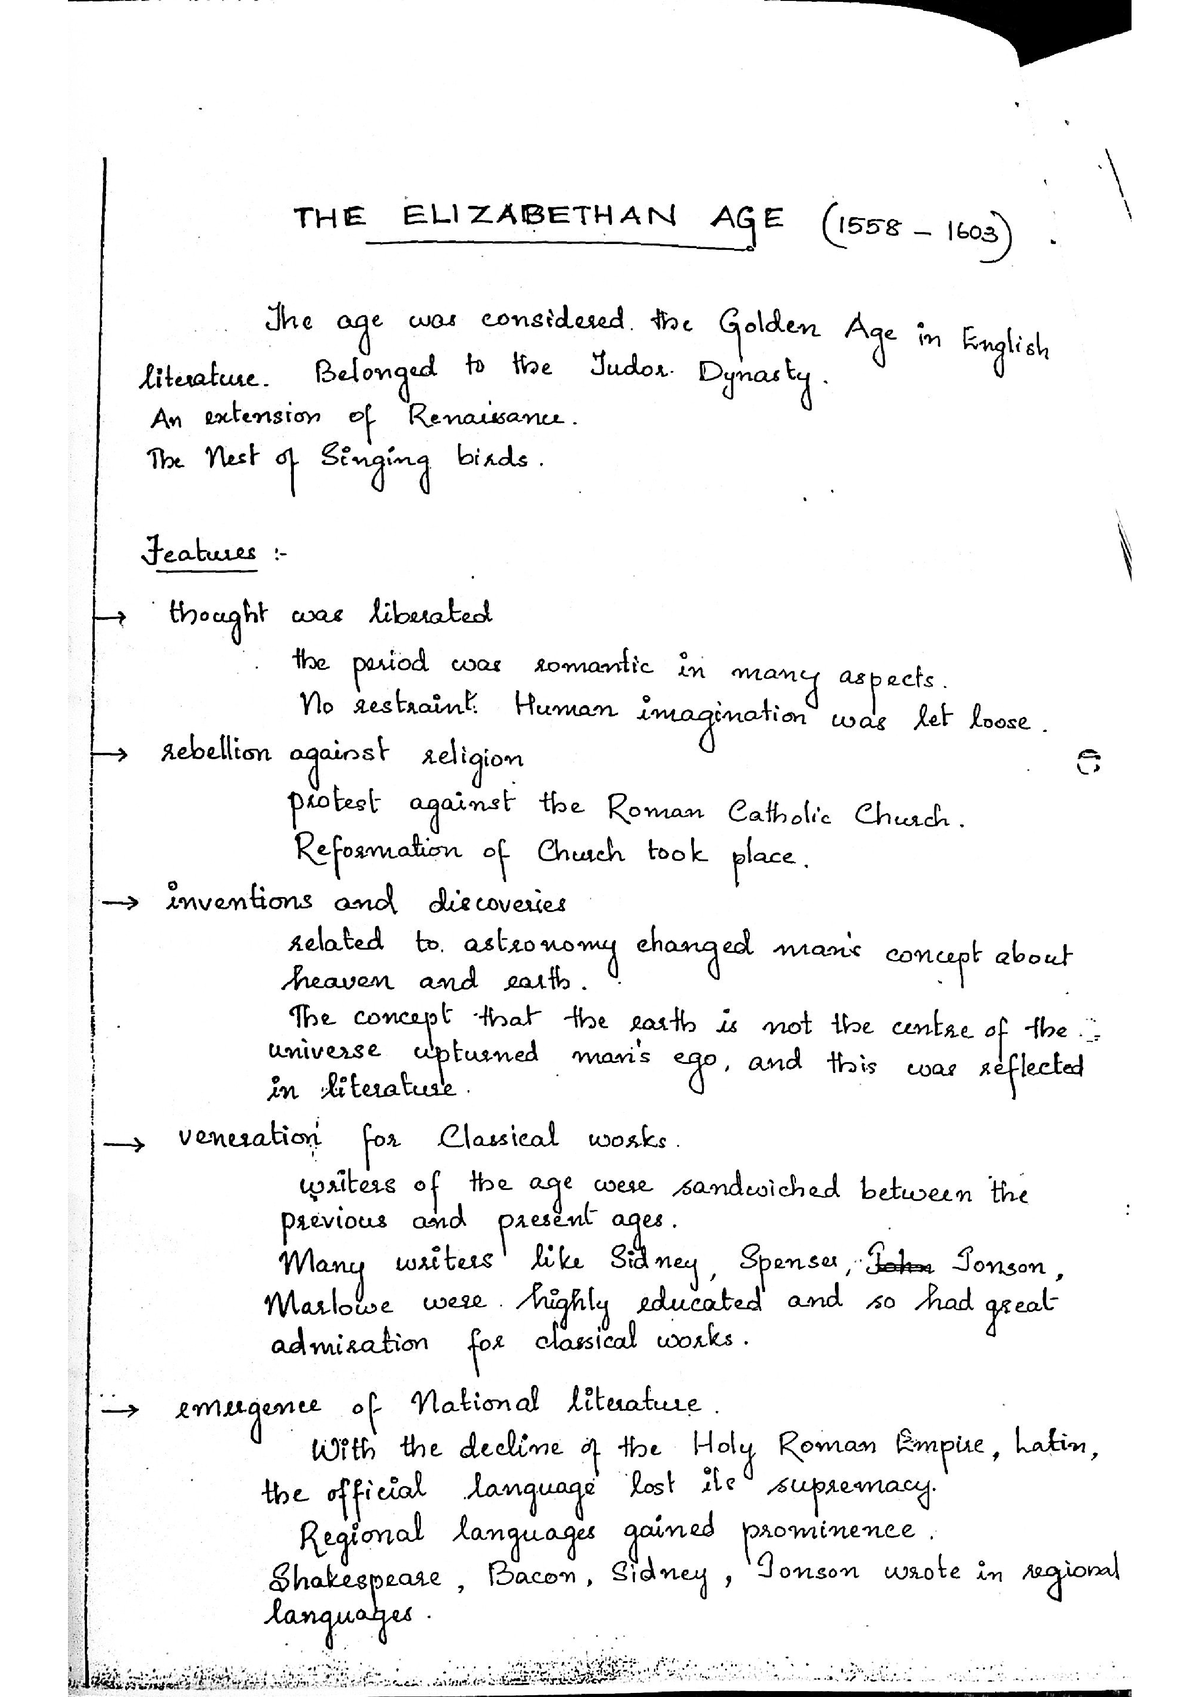 THE ELIZABETHAN AGE (1558 - 1603)
The age was considered the Golden Age in English
literature. Belonged to the Tudor Dynasty.
An extension of Renaissance.
The Nest of Singing birds.
Features :-
→ thought was liberated
the period was romantic in many aspects.
No restraint. Human imagination was let loose.
→ rebellion against religion
protest against the Roman Catholic Church.
Reformation of Church took place.
→ inventions and discoveries
related to astronomy changed man's concept about
heaven and earth.
The concept that the earth is not the centre of the
universe upturned man's ego, and this was reflected
in literature.
→ veneration for Classical works.
writers of the age were sandwiched between the
previous and present ages.
Many writers like Sidney, Spenser, John Jonson,
Marlowe were highly educated and so had great
admiration for classical works.
→ emergence of National literature.
With the decline of the Holy Roman Empire, Latin,
the official language lost its supremacy.
Regional languages gained prominence.
Shakespeare, Bacon, Sidney, Jonson wrote in regional
languages.